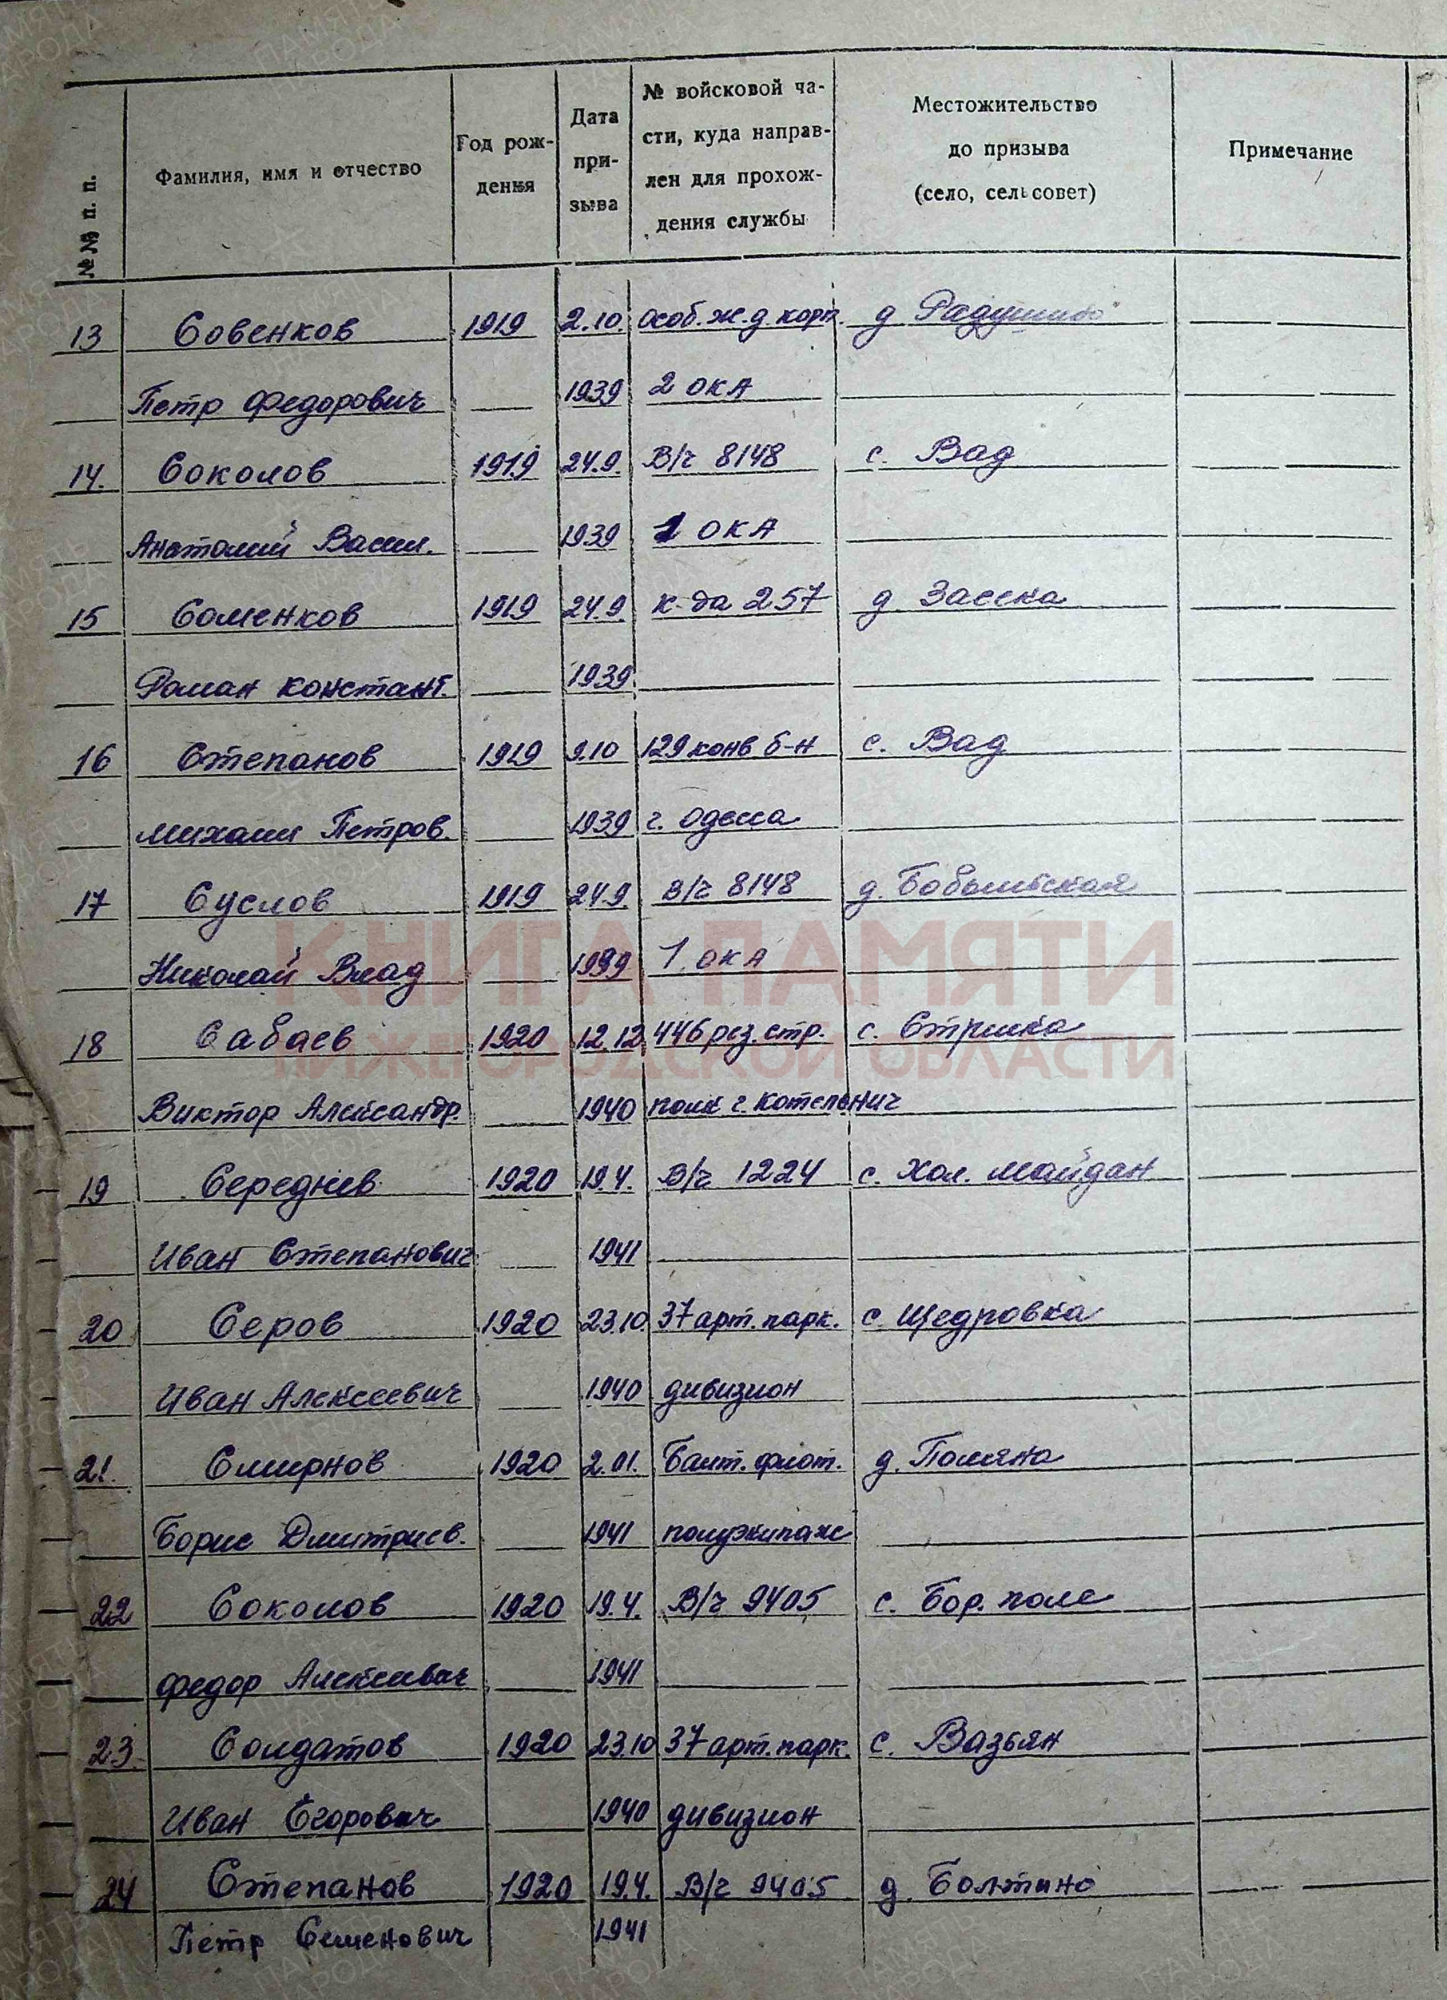 №№ п. п.
Фамилия, имя и отчество
Год рож-
дения
Дата
при-
зыва
№ войсковой ча-
сти, куда направ-
лен для прохож-
дения службы
Местожительство
до призыва
(село, сельсовет)
Примечание
13 Совенков 1919 2.10. особ. ж. д. корп. д.
Петр Федорович 1939 2 ОКА
14. Соколов 1919 24.9. В/ч 8148 с. Вад
Анатолий Васил. 1939 1 ОКА
15 Соменков 1919 24.9. к-да 257 д. Засека
Роман Констант. 1939.
16 Степанов 1919 9.10 129 конв б-н с. Вад
Михаил Петров. 1939 г. Одесса
17 Суслов 1919 24.9. В/ч 8148 д. Бобыльская
Николай Влад 1939 1. ОКА
18 Сабаев 1920 12.12 446 рез. стр. с. Стрелка
Виктор Александр. 1940 полк г. Котельнич
19 Середнев 1920 19.4. В/ч 1224 с. Хол. Майдан
Иван Степанович 1941
20 Серов 1920 23.10. 37 арт. парк. с. Щедровка
Иван Алексеевич 1940 дивизион
21. Смирнов 1920 2.01. Балт. флот. д. Поляна
Борис Дмитриев. 1941 полуэкипаж
22 Соколов 1920 19.4. В/ч 9405 с. Бор. поле
Федор Алексеевич 1941
23. Солдатов 1920 23.10 37 арт. парк. с. Вазьян
Иван Егорович 1940 дивизион
24 Степанов 1920 19.4. В/ч 9405 д. Болтино
Петр Семенович 1941
КНИГА ПАМЯТИ
НИЖЕГОРОДСКОЙ ОБЛАСТИ
ПАМЯТЬ
НАРОДА